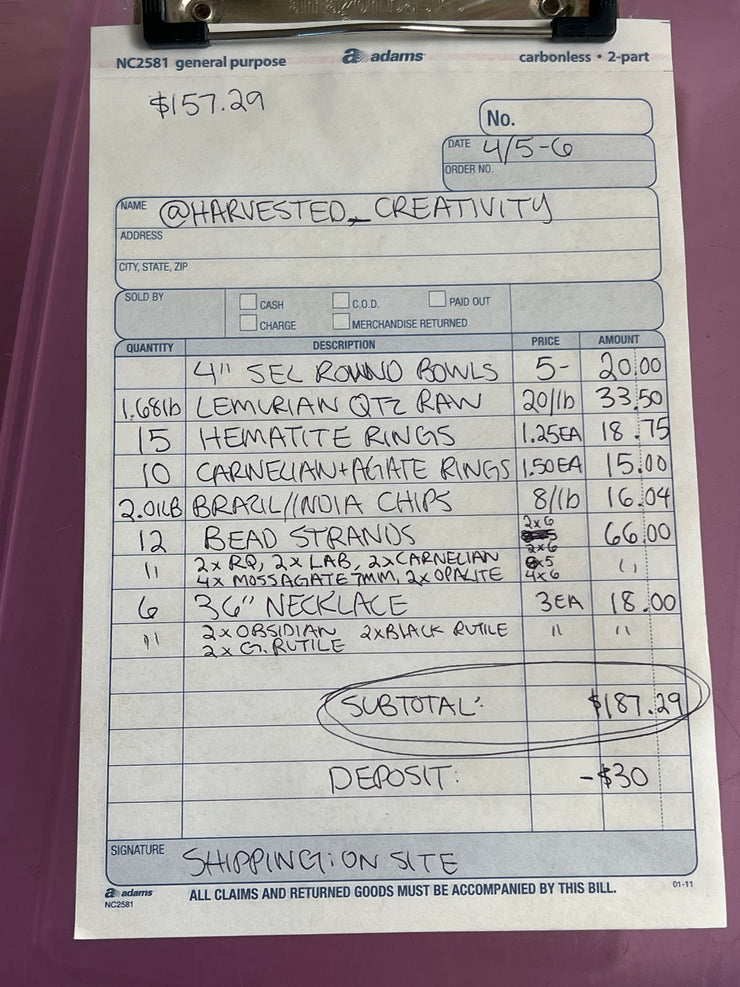 amazon basics
NC2581 general purpose
a adams
carbonless • 2-part
$157.29
No.
DATE 4/5-6
ORDER NO.
NAME @HARVESTED_CREATIVITY
ADDRESS
CITY, STATE, ZIP
SOLD BY
CASH C.O.D. PAID OUT
CHARGE MERCHANDISE RETURNED
QUANTITY DESCRIPTION PRICE AMOUNT
4" SEL ROUND BOWLS 5- 20.00
1.68lb LEMURIAN QTZ RAW 20/lb 33.50
15 HEMATITE RINGS 1.25EA 18.75
10 CARNELIAN+AGATE RINGS 1.50EA 15.00
2.01LB BRAZIL/INDIA CHIPS 8/lb 16.04
12 BEAD STRANDS 2x6 66.00
2x6
" 2x RQ, 2x LAB, 2xCARNELIAN x5 "
4x MOSSAGATE 7MM, 2x OPALITE 4x6
6 36" NECKLACE 3EA 18.00
" 2xOBSIDIAN 2xBLACK RUTILE " "
2x G. RUTILE
SUBTOTAL: $187.29
DEPOSIT: -$30
SIGNATURE SHIPPING: ON SITE
a adams
NC2581
ALL CLAIMS AND RETURNED GOODS MUST BE ACCOMPANIED BY THIS BILL.
01-11